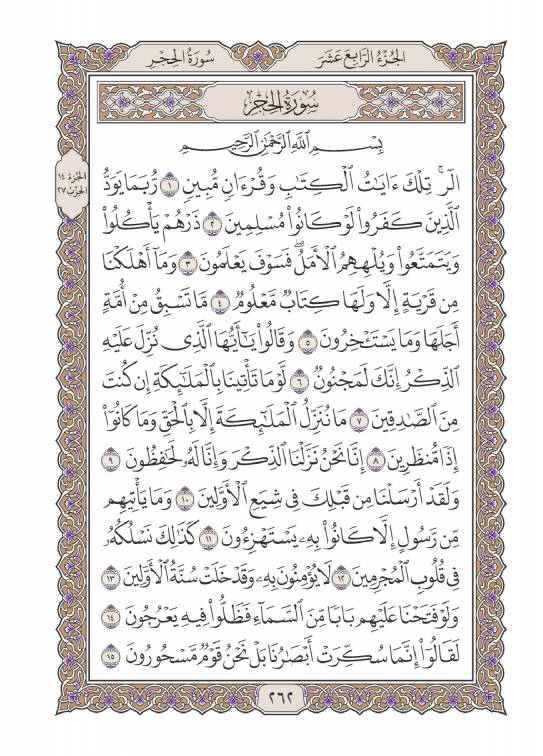 الجُزْءُ الرَّابِعَ عَشَرَ
سُورَةُ الحِجْرِ
سُورَةُ الحِجْرِ
بِسْمِ اللَّهِ الرَّحْمَٰنِ الرَّحِيمِ
الجُزْءُ ١٤
الحِزْبُ ٢٧
الٓرۚ تِلْكَ ءَايَٰتُ ٱلْكِتَٰبِ وَقُرْءَانٍ مُّبِينٍ ١ رُّبَمَا يَوَدُّ
ٱلَّذِينَ كَفَرُوا۟ لَوْ كَانُوا۟ مُسْلِمِينَ ٢ ذَرْهُمْ يَأْكُلُوا۟
وَيَتَمَتَّعُوا۟ وَيُلْهِهِمُ ٱلْأَمَلُۖ فَسَوْفَ يَعْلَمُونَ ٣ وَمَآ أَهْلَكْنَا
مِن قَرْيَةٍ إِلَّا وَلَهَا كِتَابٌ مَّعْلُومٌ ٤ مَّا تَسْبِقُ مِنْ أُمَّةٍ
أَجَلَهَا وَمَا يَسْتَـْٔخِرُونَ ٥ وَقَالُوا۟ يَٰٓأَيُّهَا ٱلَّذِى نُزِّلَ عَلَيْهِ
ٱلذِّكْرُ إِنَّكَ لَمَجْنُونٌ ٦ لَّوْ مَا تَأْتِينَا بِٱلْمَلَٰٓئِكَةِ إِن كُنتَ
مِنَ ٱلصَّٰدِقِينَ ٧ مَا نُنَزِّلُ ٱلْمَلَٰٓئِكَةَ إِلَّا بِٱلْحَقِّ وَمَا كَانُوٓا۟
إِذًا مُّنظَرِينَ ٨ إِنَّا نَحْنُ نَزَّلْنَا ٱلذِّكْرَ وَإِنَّا لَهُۥ لَحَٰفِظُونَ ٩
وَلَقَدْ أَرْسَلْنَا مِن قَبْلِكَ فِى شِيَعِ ٱلْأَوَّلِينَ ١٠ وَمَا يَأْتِيهِم
مِّن رَّسُولٍ إِلَّا كَانُوا۟ بِهِۦ يَسْتَهْزِءُونَ ١١ كَذَٰلِكَ نَسْلُكُهُۥ
فِى قُلُوبِ ٱلْمُجْرِمِينَ ١٢ لَا يُؤْمِنُونَ بِهِۦ وَقَدْ خَلَتْ سُنَّةُ ٱلْأَوَّلِينَ ١٣
وَلَوْ فَتَحْنَا عَلَيْهِم بَابًا مِّنَ ٱلسَّمَآءِ فَظَلُّوا۟ فِيهِ يَعْرُجُونَ ١٤
لَقَالُوٓا۟ إِنَّمَا سُكِّرَتْ أَبْصَٰرُنَا بَلْ نَحْنُ قَوْمٌ مَّسْحُورُونَ ١٥
٢٦٢